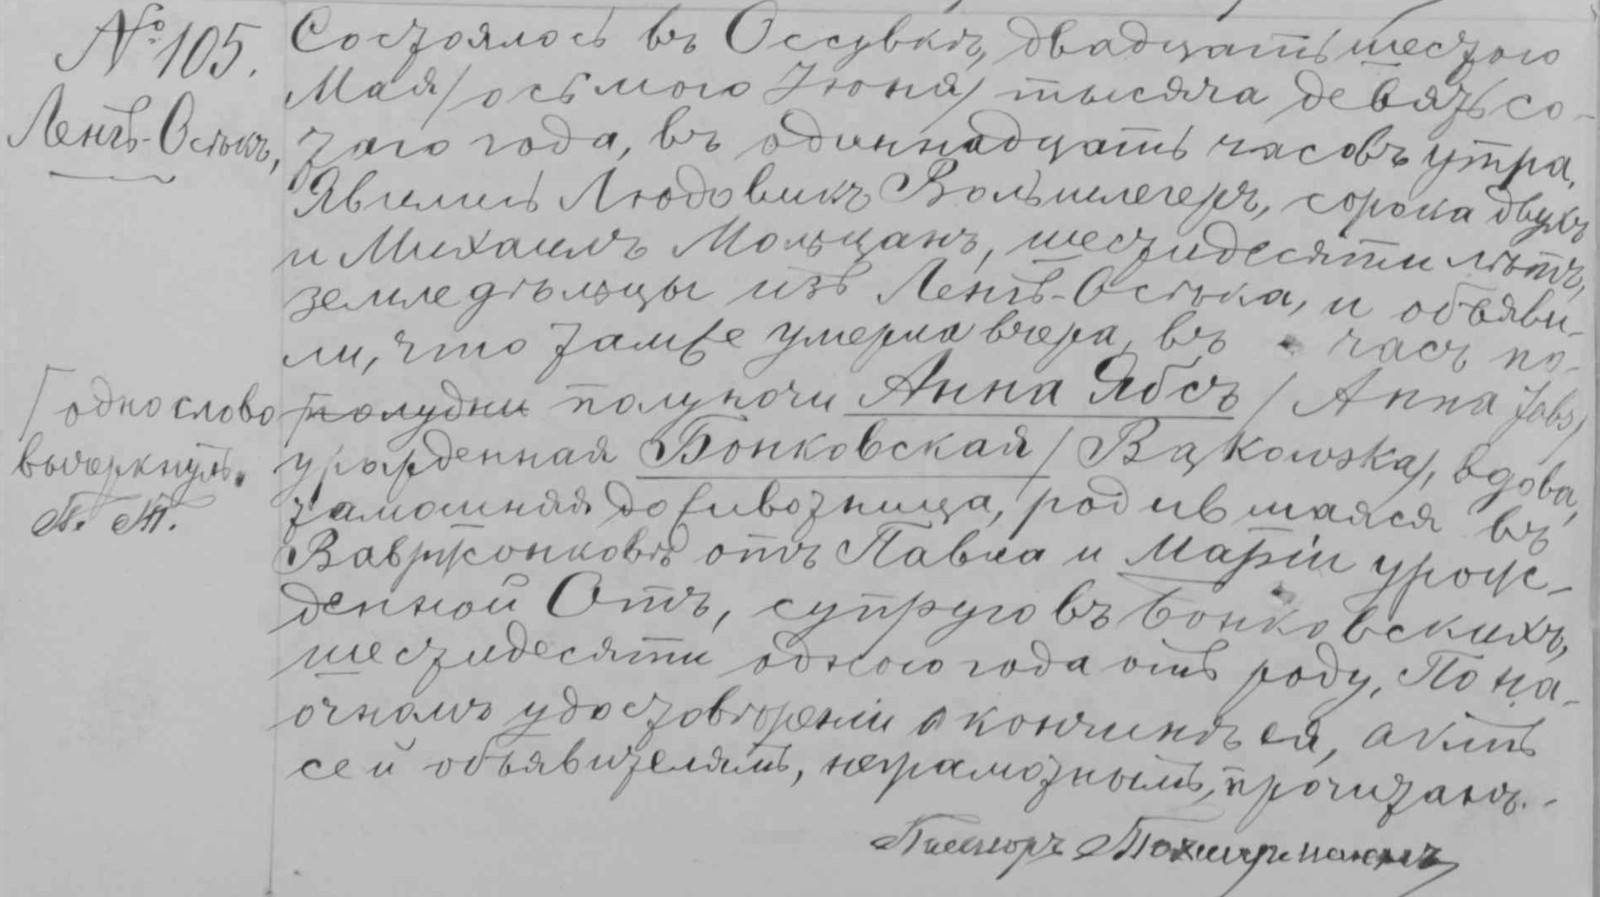 № 105.
Ленгъ-Осѣкъ,
Состоялось въ Оссувкѣ, двадцать шестого
Мая/осьмого Іюня/тысяча девятьсо-
таго года, въ одиннадцать часовъ утра.
Явились Людовикъ Вольшлегеръ, сорока двухъ
и Михаилъ Мольцанъ, шестидесяти лѣтъ,
земледѣльцы изъ Ленгъ-Осѣка, и объяви-
ли, что тамже умерла вчера, въ часъ по-
полудни полуночи Анна Ябсъ /Anna Jabs/
урожденная Бонковская /Bąkowska/, вдова,
тамошняя домовозница, родившаяся въ
Вавржонковѣ отъ Павла и Маріи урож-
денной Отъ, супруговъ Бонковскихъ,
шестидесяти одного года отъ роду. По на-
очномъ удостовѣреніи о кончинѣ ея, актъ
сей объявителямъ, неграмотнымъ, прочитанъ. -
Пасторъ
одно слово
вычеркнуль.
П.